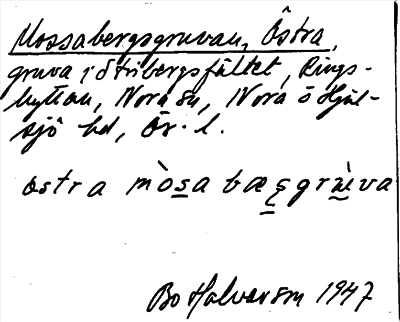 Mossabergsgruvan, Östra,
gruva i Östribergsfältet, Rings-
hyttan, Nora sn, Nora o Hjul-
sjö bd, Ör. l.
östra mòsa bæsgrùva
Bo Halvarsson 1947